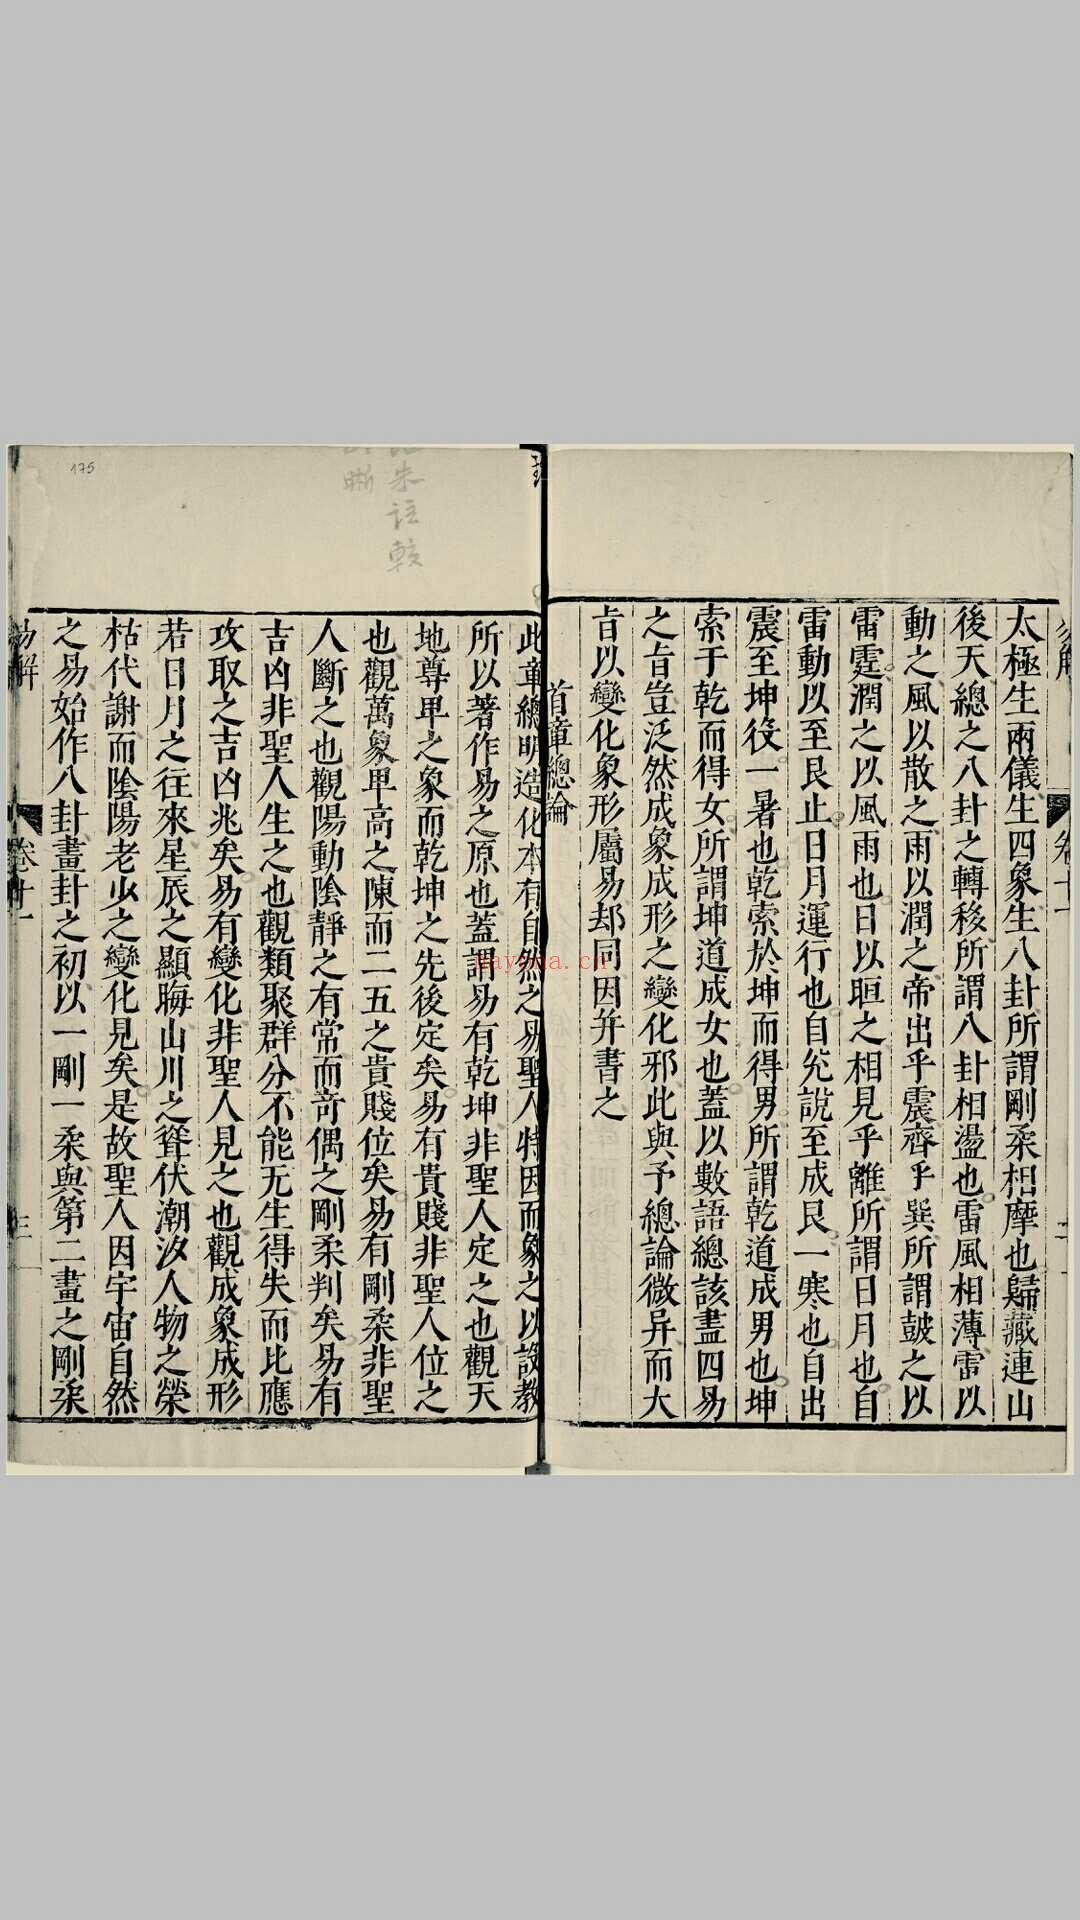 太極生兩儀生四象生八卦所謂剛柔相摩也歸藏連山
後天總之八卦之轉移所謂八卦相盪也雷風相薄雷以
動之風以散之雨以潤之帝出乎震齊乎巽所謂鼓之以
雷霆潤之以風雨也日以晅之相見乎離所謂日月也自
雷動以至艮止日月運行也自兊說至成艮一寒也自出
震至坤役一暑也乾索於坤而得男所謂乾道成男也坤
索于乾而得女所謂坤道成女也蓋以數語總該盡四易
之旨豈泛然成象成形之變化邪此與予總論微异而大
旨以變化象形屬易却同因并書之
首章總論
此章總明造化本有自然之易聖人特因而象之以設教
所以著作易之原也蓋謂易有乾坤非聖人定之也觀天
地尊卑之象而乾坤之先後定矣易有貴賤非聖人位之
也觀萬象卑高之陳而二五之貴賤位矣易有剛柔非聖
人斷之也觀陽動陰靜之有常而奇偶之剛柔判矣易有
吉凶非聖人生之也觀類聚群分不能无生得失而比應
攻取之吉凶兆矣易有變化非聖人見之也觀成象成形
若日月之往來星辰之顯晦山川之聳伏潮汐人物之榮
枯代謝而陰陽老少之變化見矣是故聖人因宇宙自然
之易始作八卦畫卦之初以一剛一柔與第二畫之剛柔
易解
卷十一
三
朱註較
晰
175
nayona.cn